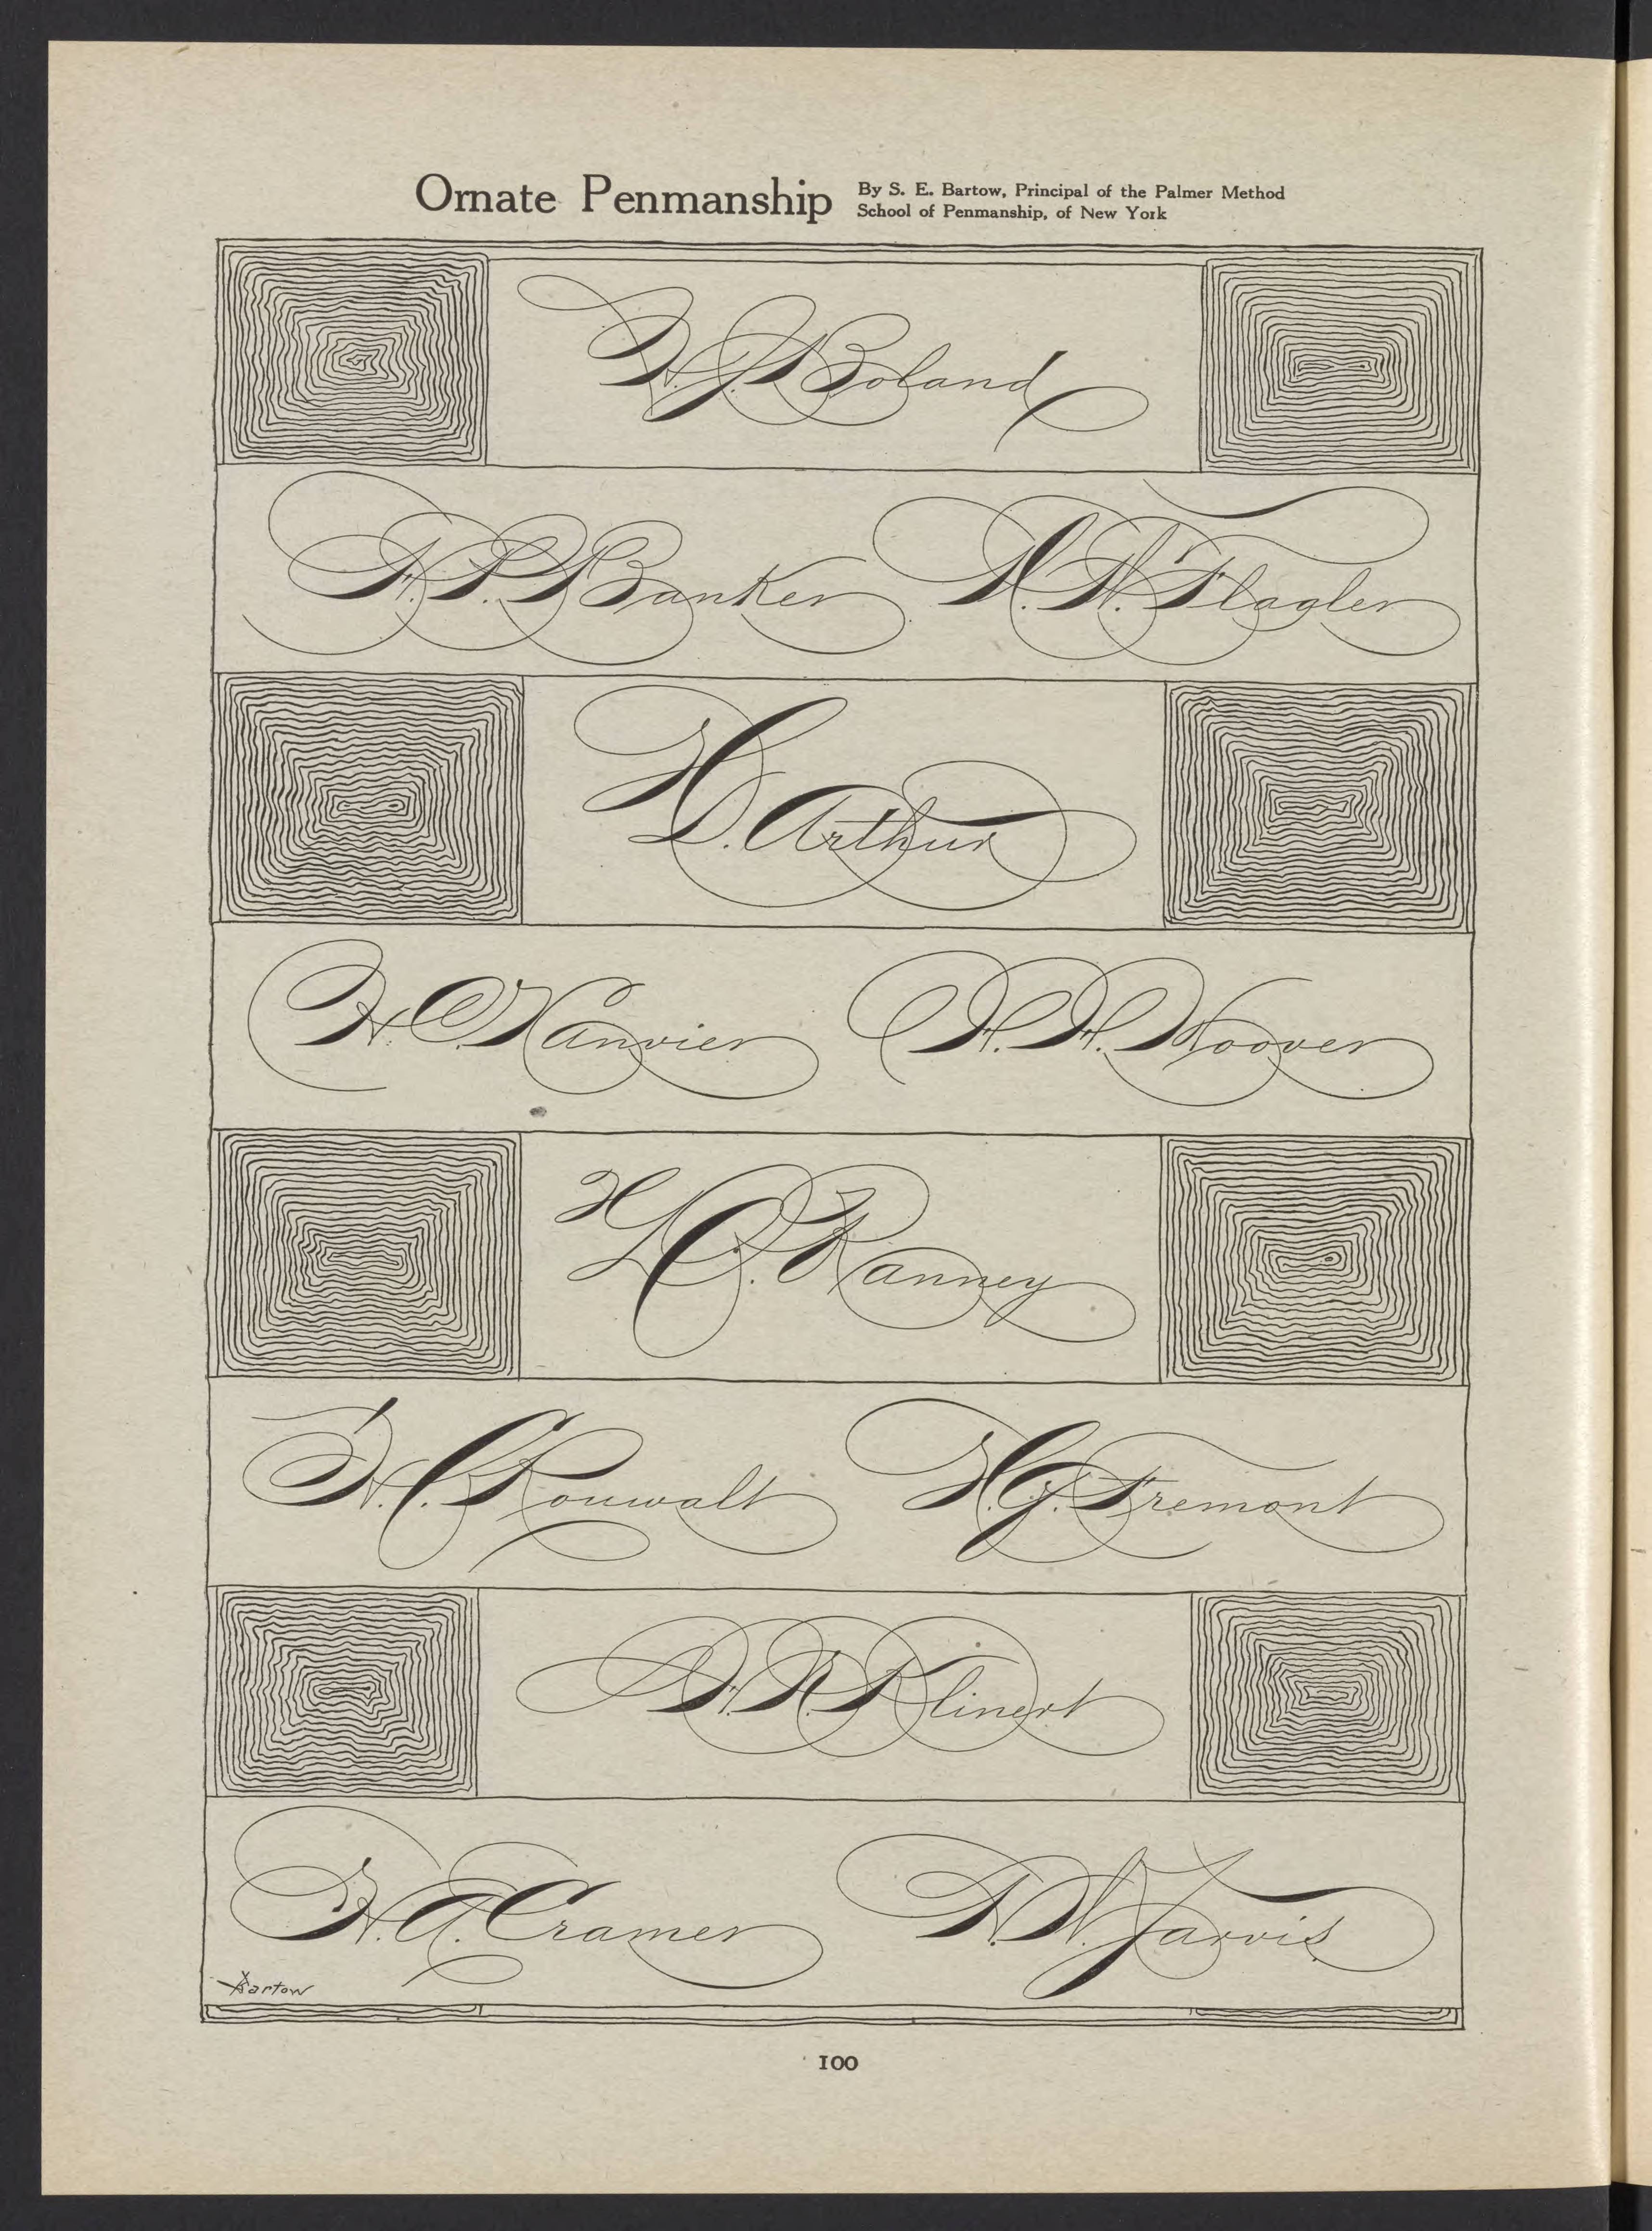 Ornate Penmanship
By S. E. Bartow, Principal of the Palmer Method
School of Penmanship, of New York
Boland
Banker
Flagler
H. D. Arthur
H. C. Vanvier
H. H. Hoover
Ranney
H. C. Rouwalt
H. G. Fremont
Klinert
H. A. Cramer
H. W. Jarvis
Bartow
100